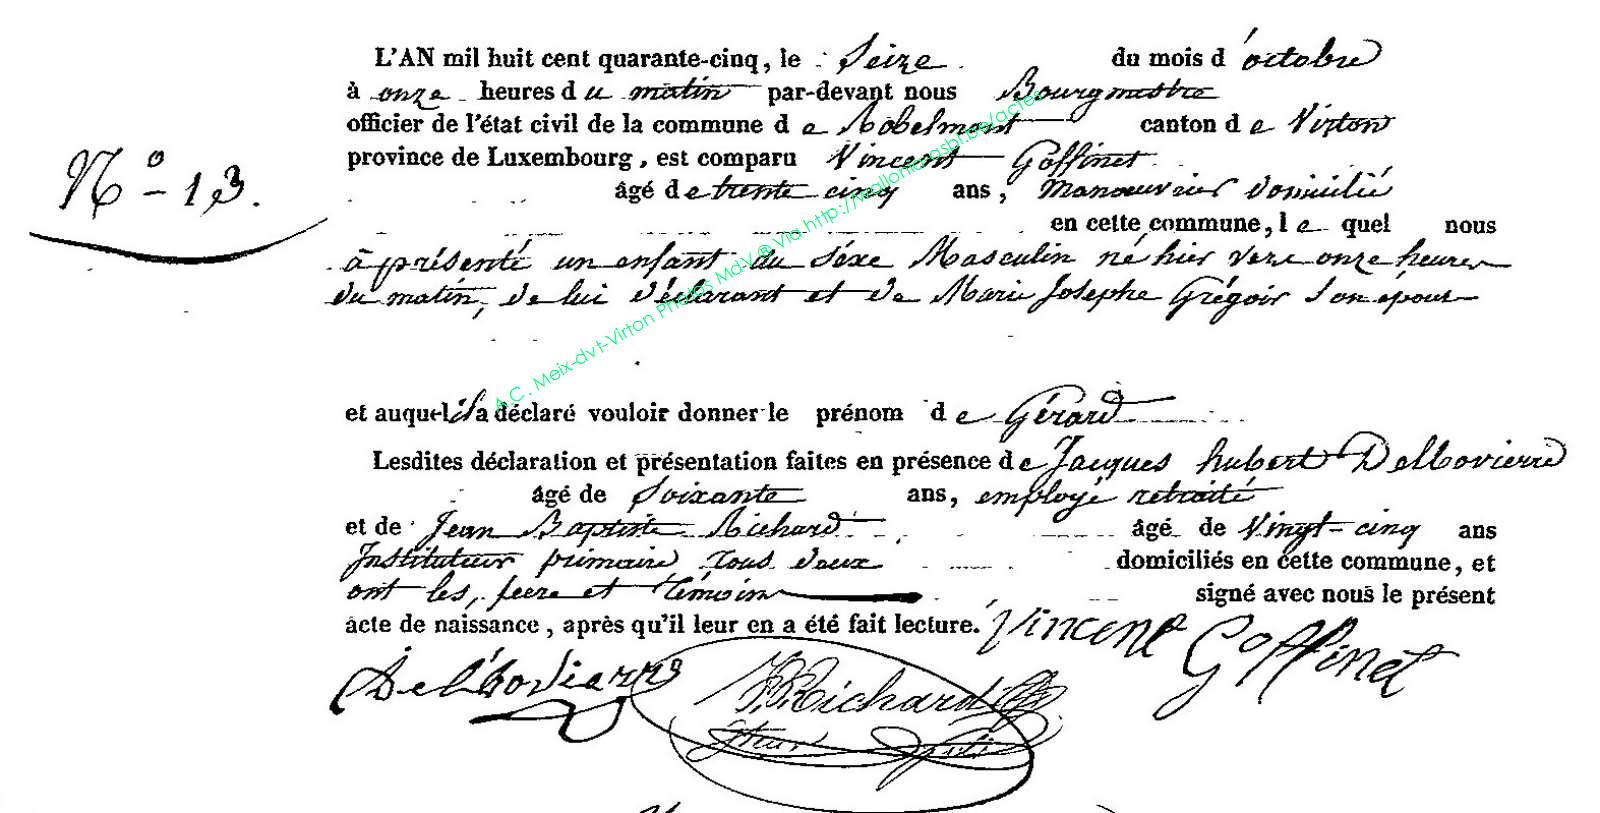 L'AN mil huit cent quarante-cinq, le Seize du mois d'octobre
à onze heures du matin par-devant nous Bourgmestre
officier de l'état civil de la commune de Robelmont canton de Virton
province de Luxembourg, est comparu Vincent Goffinet
N° 13.
âgé de trente cinq ans, Manoeuvrier domicilié
en cette commune, le quel nous
à présenté un enfant du séxe Masculin né hier vers onze heures
du matin, de lui déclarant et de Marie Josephe Grégoir son épouse
et auquel il a déclaré vouloir donner le prénom de Gérard
Lesdites déclaration et présentation faites en présence de Jacques hubert Delbovierre
âgé de Soixante ans, employé retraité
et de Jean Baptiste Richard âgé de Vingt-cinq ans
Instituteur primaire tous deux domiciliés en cette commune, et
ont les, père et témoins signé avec nous le présent
acte de naissance, après qu'il leur en a été fait lecture. Vincent Goffinet
Richard
A.C. Meix-dvt-Virton Photos Md-V ® Via http://walloniaasbl.be/actes